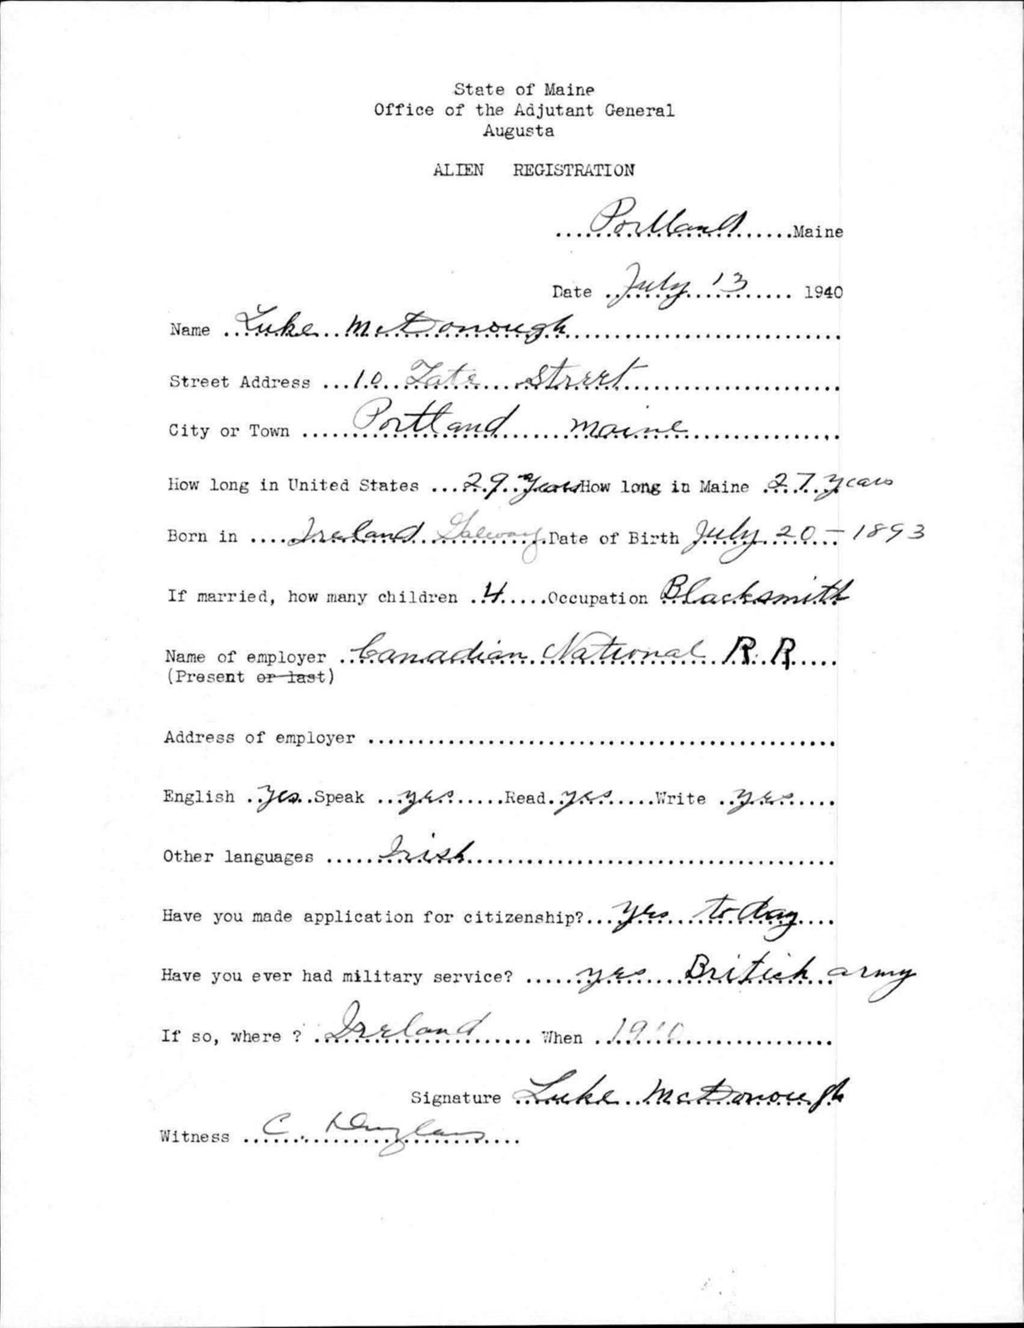 State of Maine
Office of the Adjutant General
Augusta
ALIEN REGISTRATION
Portland Maine
Date July 13 1940
Name Luke McDonough
Street Address 10 Tate Street
City or Town Portland Maine
How long in United States 29 Years How long in Maine 27 years
Born in Ireland Galway Date of Birth July 20 - 1893
If married, how many children 4 Occupation Blacksmith
Name of employer Canadian National R. R.
(Present or last)
Address of employer
English Yes Speak yes Read yes Write yes
Other languages Irish
Have you made application for citizenship? yes to day
Have you ever had military service? yes British army
If so, where ? Ireland When 1910
Signature Luke McDonough
Witness C. Douglass